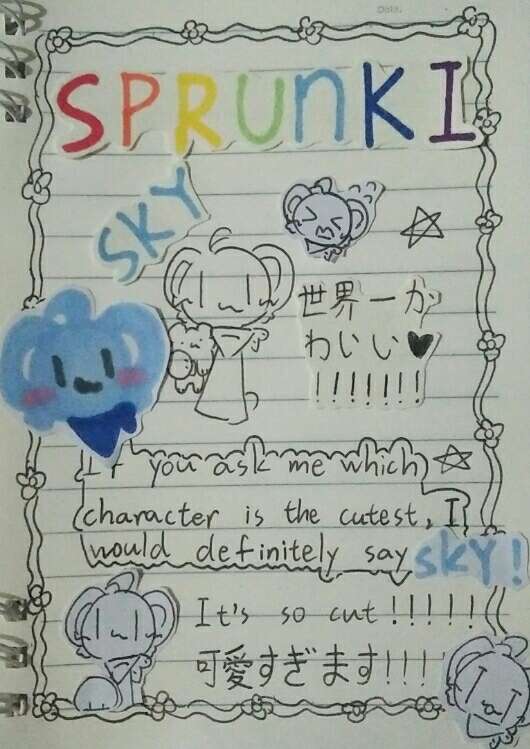 SPRUNKI
SKY
世界一か
わいい♥
!!!!!!!
If you ask me which
character is the cutest, I
would definitely say SKY!
It's so cut!!!!!
可愛すぎます!!!